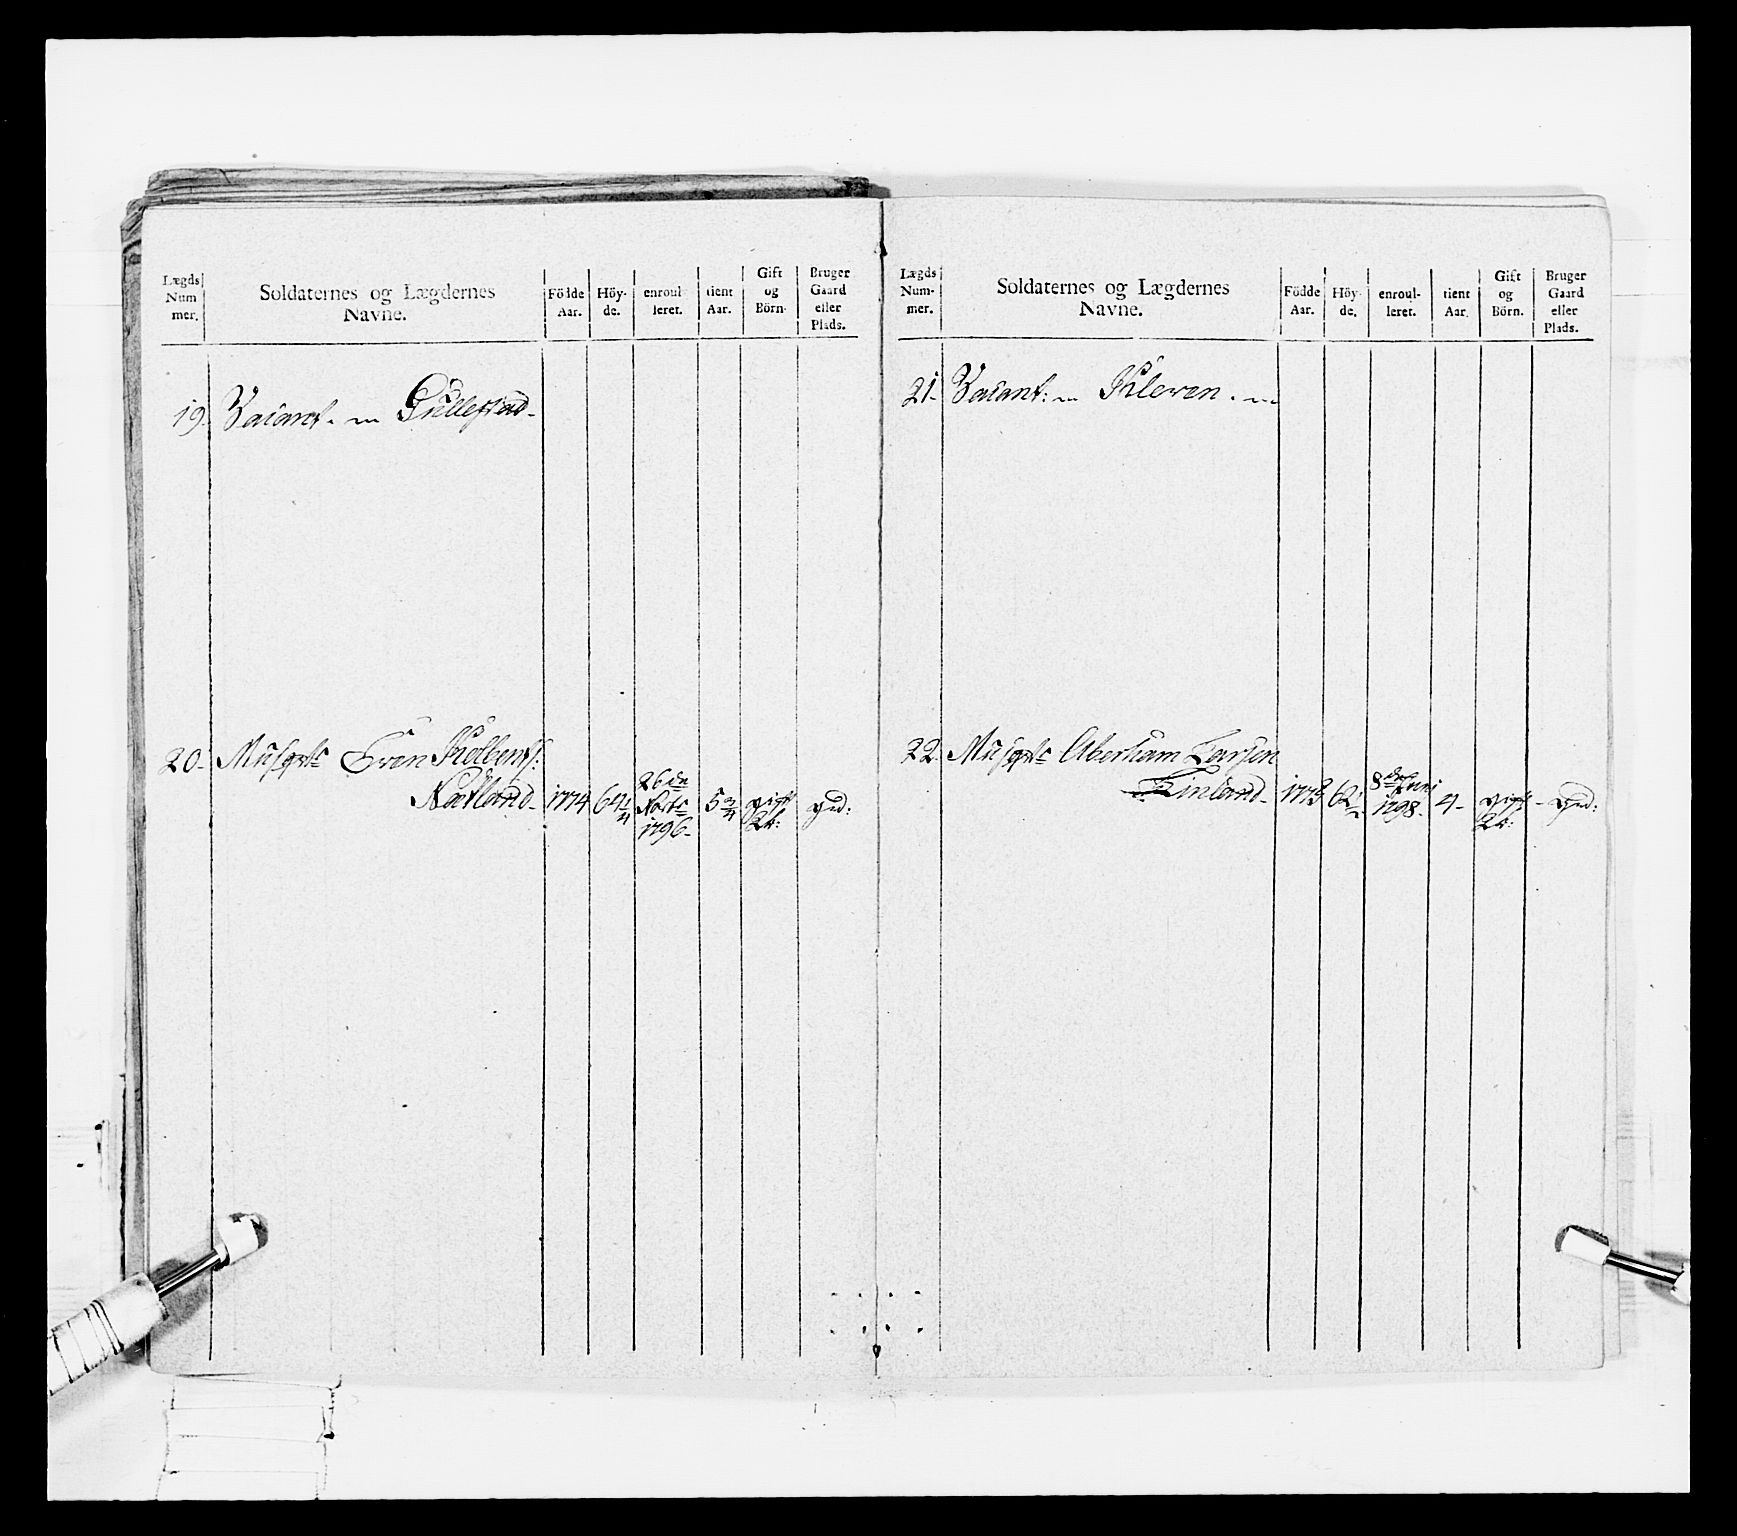 Lægds Num mer.
Soldaternes og Lægdernes Navne.
Födde Aar.
Höy- de.
enroul- leret.
tient Aar.
Gift og Börn.
Bruger Gaard eller Plads.
19. Vacant.
20. Musqt:
Natland - 1774 64 1/4 26de 1796 - 5 3/4 gift
Lægds Num- mer.
Soldaternes og Lægdernes Navne.
Födde Aar.
Höy- de.
enroul- leret.
tient Aar.
Gift og Börn.
Bruger Gaard eller Plads.
21. Vacant: Kleven
22. Musqt: Aberham Larsen
Finland - 1773 62 1/2 8de Juni 1798 - 4 - gift